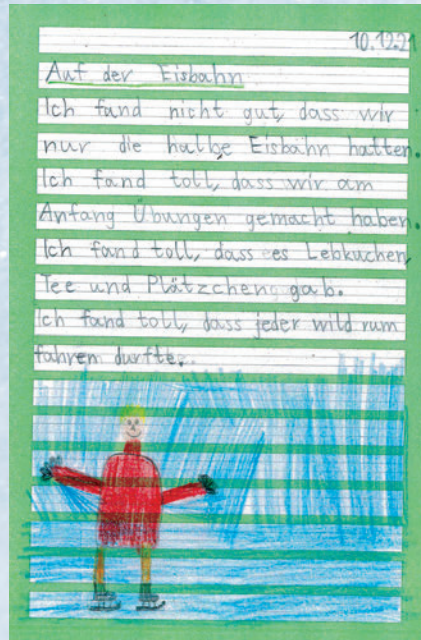 10.12.21
Auf der Eisbahn
Ich fand nicht gut, dass wir
nur die halbe Eisbahn hatten.
Ich fand toll, dass wir am
Anfang Übungen gemacht haben.
Ich fand toll, dass es Lebkuchen,
Tee und Plätzchen gab.
Ich fand toll, dass jeder wild rum
fahren durfte.